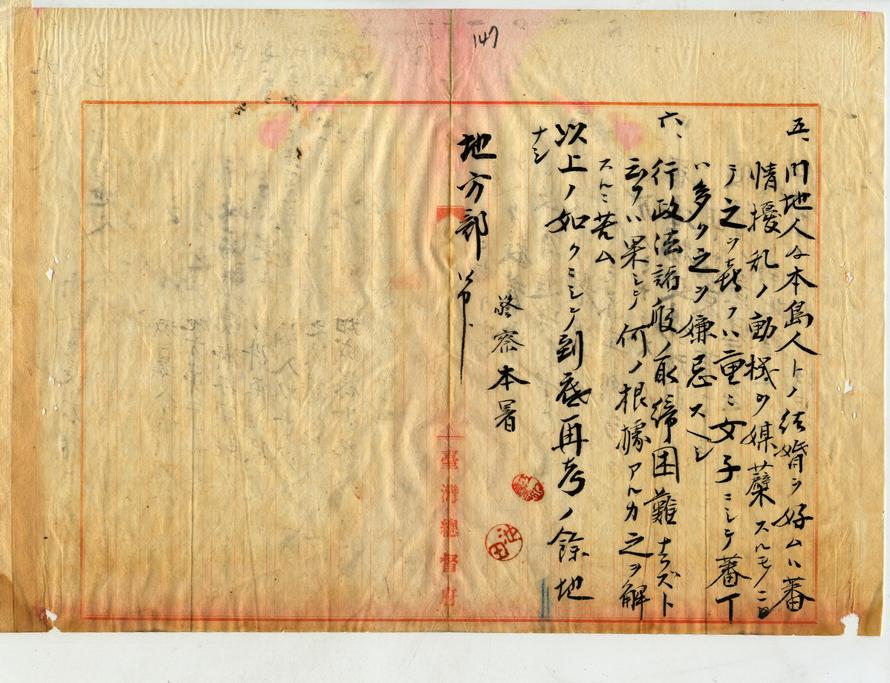 五、内地人及本島人トノ結婚ヲ好ムハ蕃
情擾乱ノ動機ヲ媒蘖スルモノニ
テ之ヲ喜フハ重ニ女子ニシテ蕃丁
ハ多ク之ヲ嫌忌スヘシ
六、行政法諸般ノ取締困難ナラズト
云フハ果シテ何ノ根據アルカ之ヲ解
スルニ苦ム
以上ノ如クニシテ到底再考ノ餘地
ナシ
警察本署
地方部
臺灣總督府
147
池田